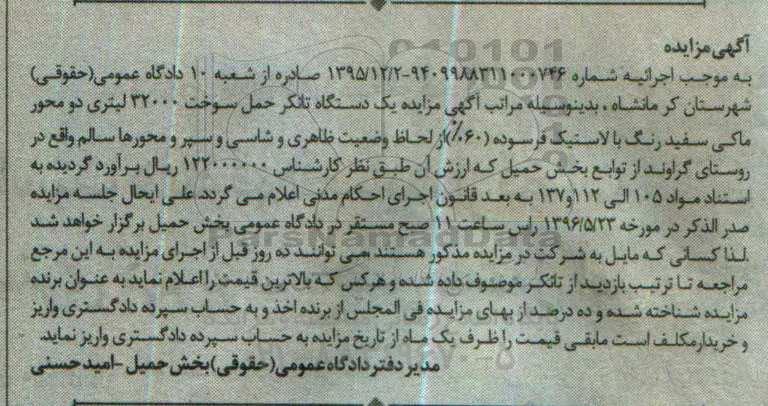 آگهی مزایده
به موجب اجرائیه شماره ۹۴۰۹۹۸۸۳۱۱۰۰۰۷۴۶-۱۳۹۵/۱۲/۲ صادره از شعبه ۱۰ دادگاه عمومی(حقوقی)
شهرستان کرمانشاه ، بدینوسیله مراتب آگهی مزایده یک دستگاه تانکر حمل سوخت ۳۲۰۰۰ لیتری دو محور
ماکی سفید رنگ با لاستیک فرسوده (۶۰٪)از لحاظ وضعیت ظاهری و شاسی و سپر و محورها سالم واقع در
روستای گراوند از توابع بخش حمیل که ارزش آن طبق نظر کارشناس ۱۲۲۰۰۰۰۰۰ ریال برآورد گردیده به
استناد مواد ۱۰۵ الی ۱۱۲و۱۳۷ به بعد قانون اجرای احکام مدنی اعلام می گردد. علی ایحال جلسه مزایده
صدر الذکر در مورخه ۱۳۹۶/۵/۲۳ راس ساعت ۱۱ صبح مستقر در دادگاه عمومی بخش حمیل برگزار خواهد شد
.لذا کسانی که مایل به شرکت در مزایده مذکور هستند می توانند ده روز قبل از اجرای مزایده به این مرجع
مراجعه تا ترتیب بازدید از تانکر موصوف داده شده و هرکس که بالاترین قیمت را اعلام نماید به عنوان برنده
مزایده شناخته شده و ده درصد از بهای مزایده فی المجلس از برنده اخذ و به حساب سپرده دادگستری واریز
و خریدارمکلف است مابقی قیمت را ظرف یک ماه از تاریخ مزایده به حساب سپرده دادگستری واریز نماید.
مدیر دفتر دادگاه عمومی (حقوقی) بخش حمیل -امید حسنی